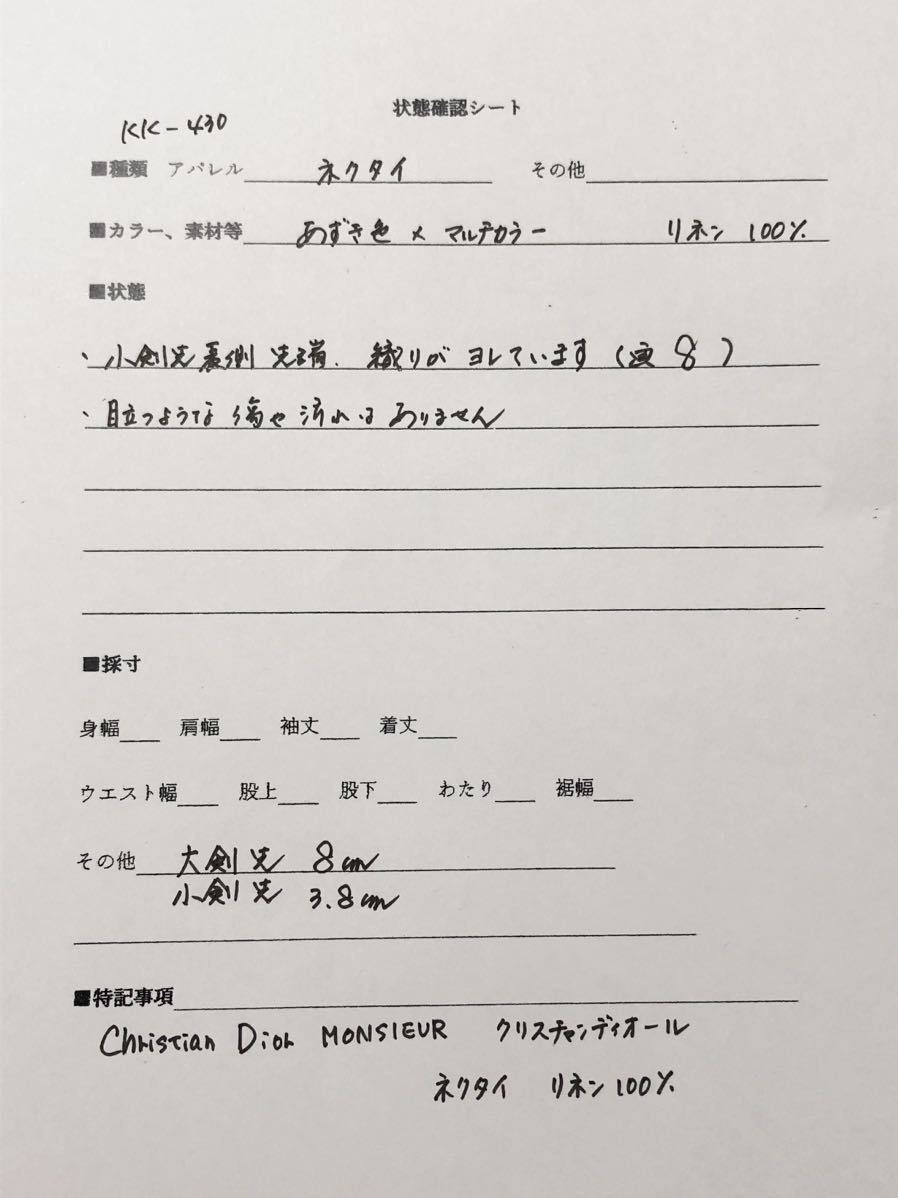 状態確認シート
KK-430
■種類 アパレル ネクタイ その他
■カラー、素材等 あずき色 × マルチカラー リネン 100%
■状態
・小剣先裏側 先端、織りがヨレています (画 8)
・目立つような傷や汚れはありません
■採寸
身幅 肩幅 袖丈 着丈
ウエスト幅 股上 股下 わたり 裾幅
その他 大剣先 8cm
小剣先 3.8cm
■特記事項
Christian Dior MONSIEUR クリスチャンディオール
ネクタイ リネン100%